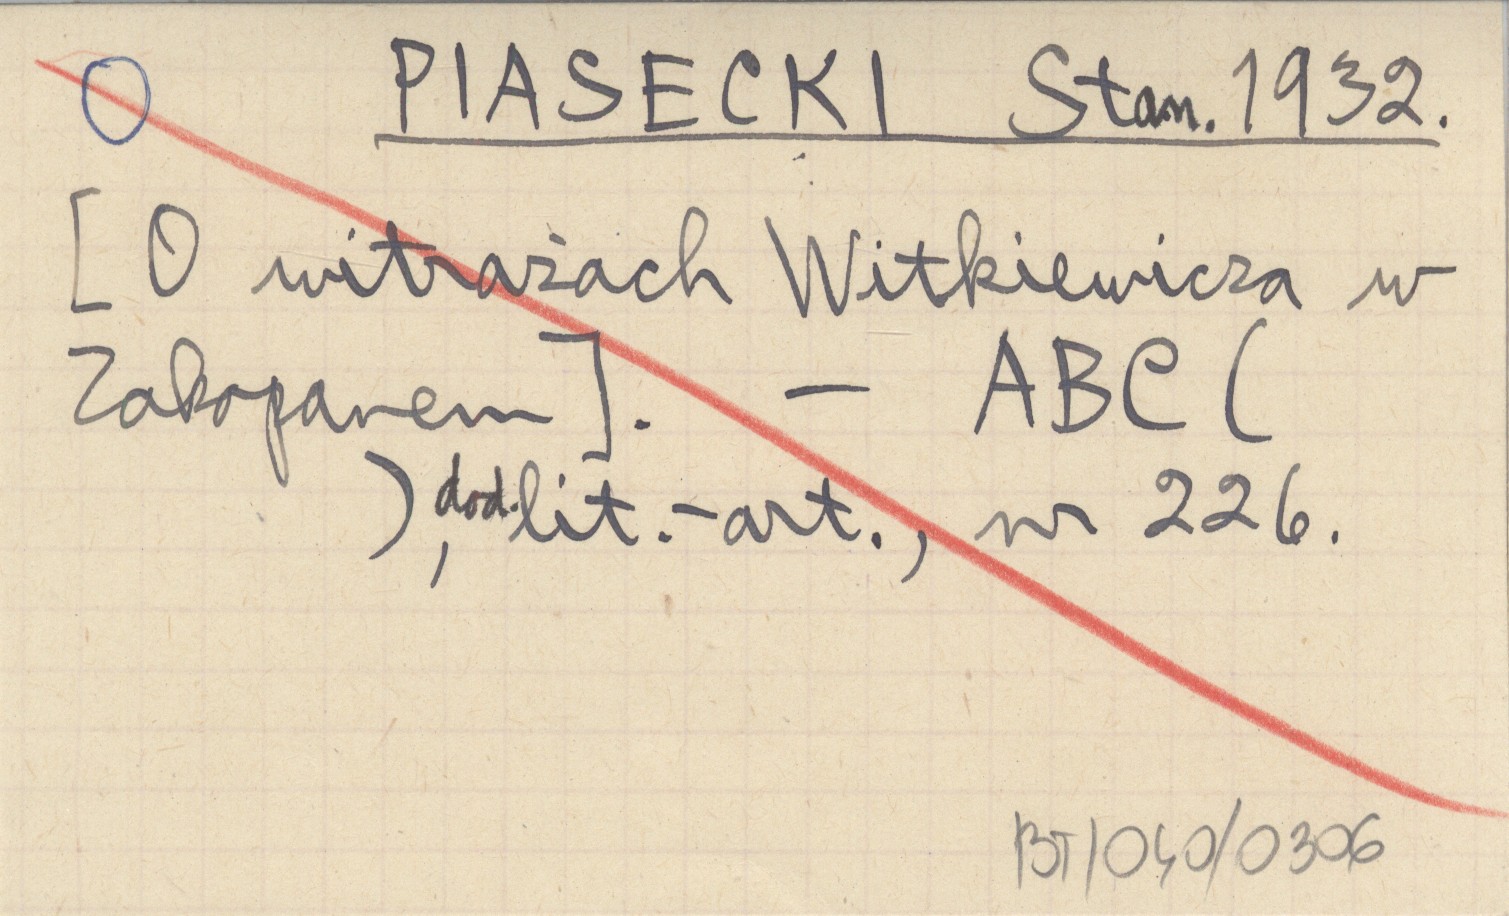 O PIASECKI Stan. 1932.
[O witrażach Witkiewicza w
Zakopanem]. — ABC (
), dod. lit.-art., nr 226.
BT/040/0306